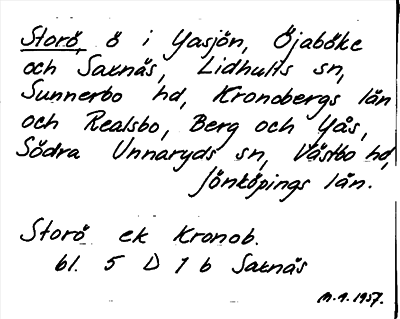 Storö, ö i Yasjön, Öjaböke
och Saxnäs, Lidhults sn,
Sunnerbo hd, Kronobergs län
och Realsbo, Berg och Yås,
Södra Unnaryds sn, Västbo hd,
Jönköpings län.
Storö ek Kronob.
bl. 5 D 7 b Saxnäs
1957.